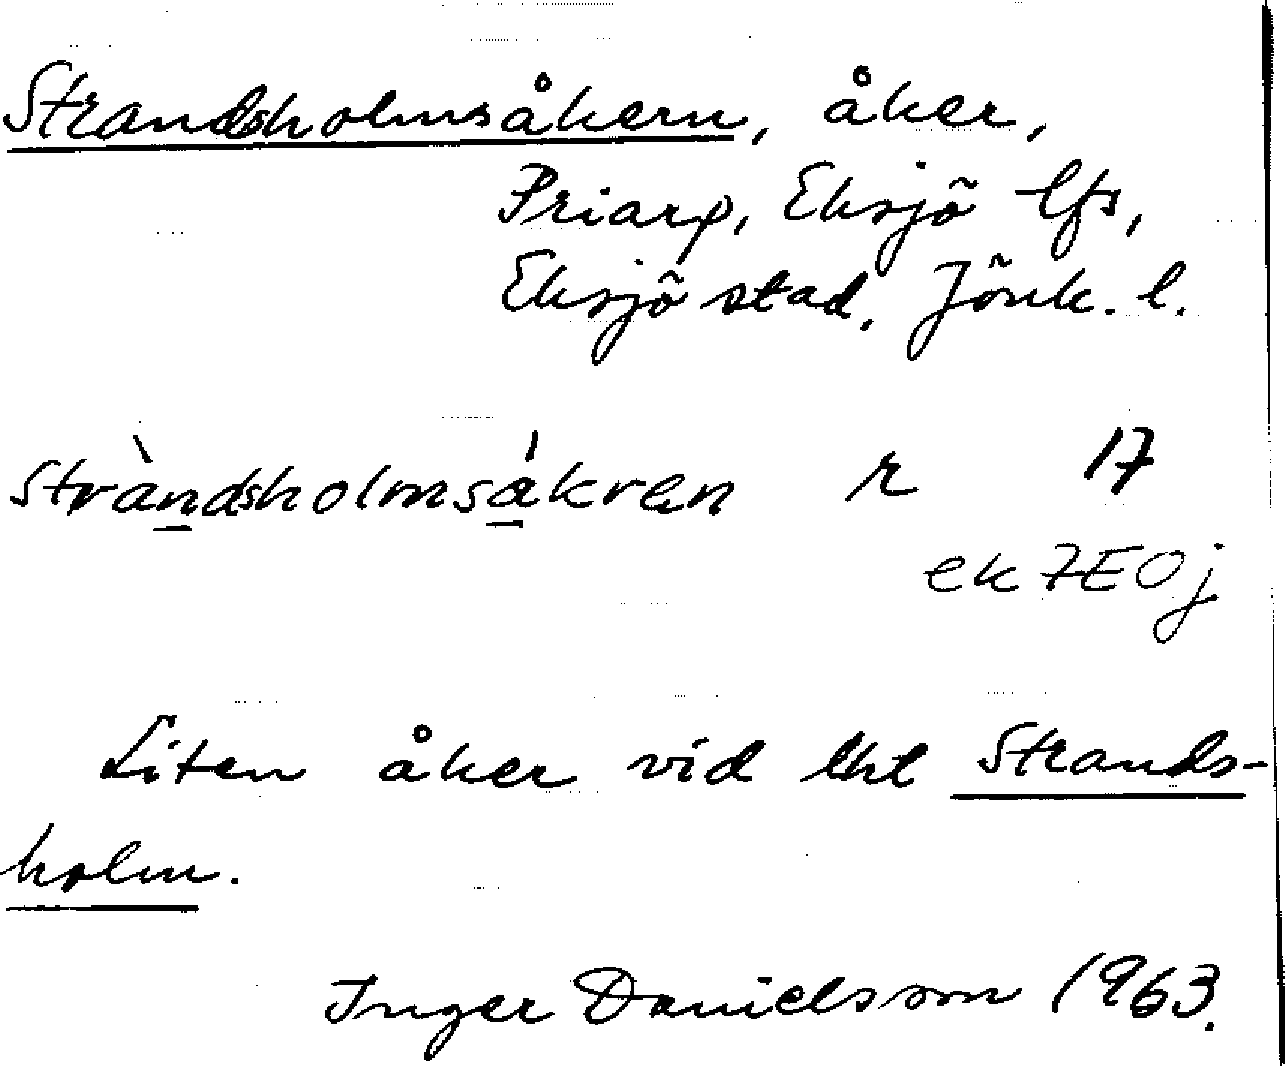 Strandsholmsåkern, åker,
Priarp, Eksjö lfs,
Eksjö stad, Jönk. l.
stràndsholmsákren r 17
ek 7E0j
Liten åker vid lht Strands-
holm.
Inger Danielsson 1963.